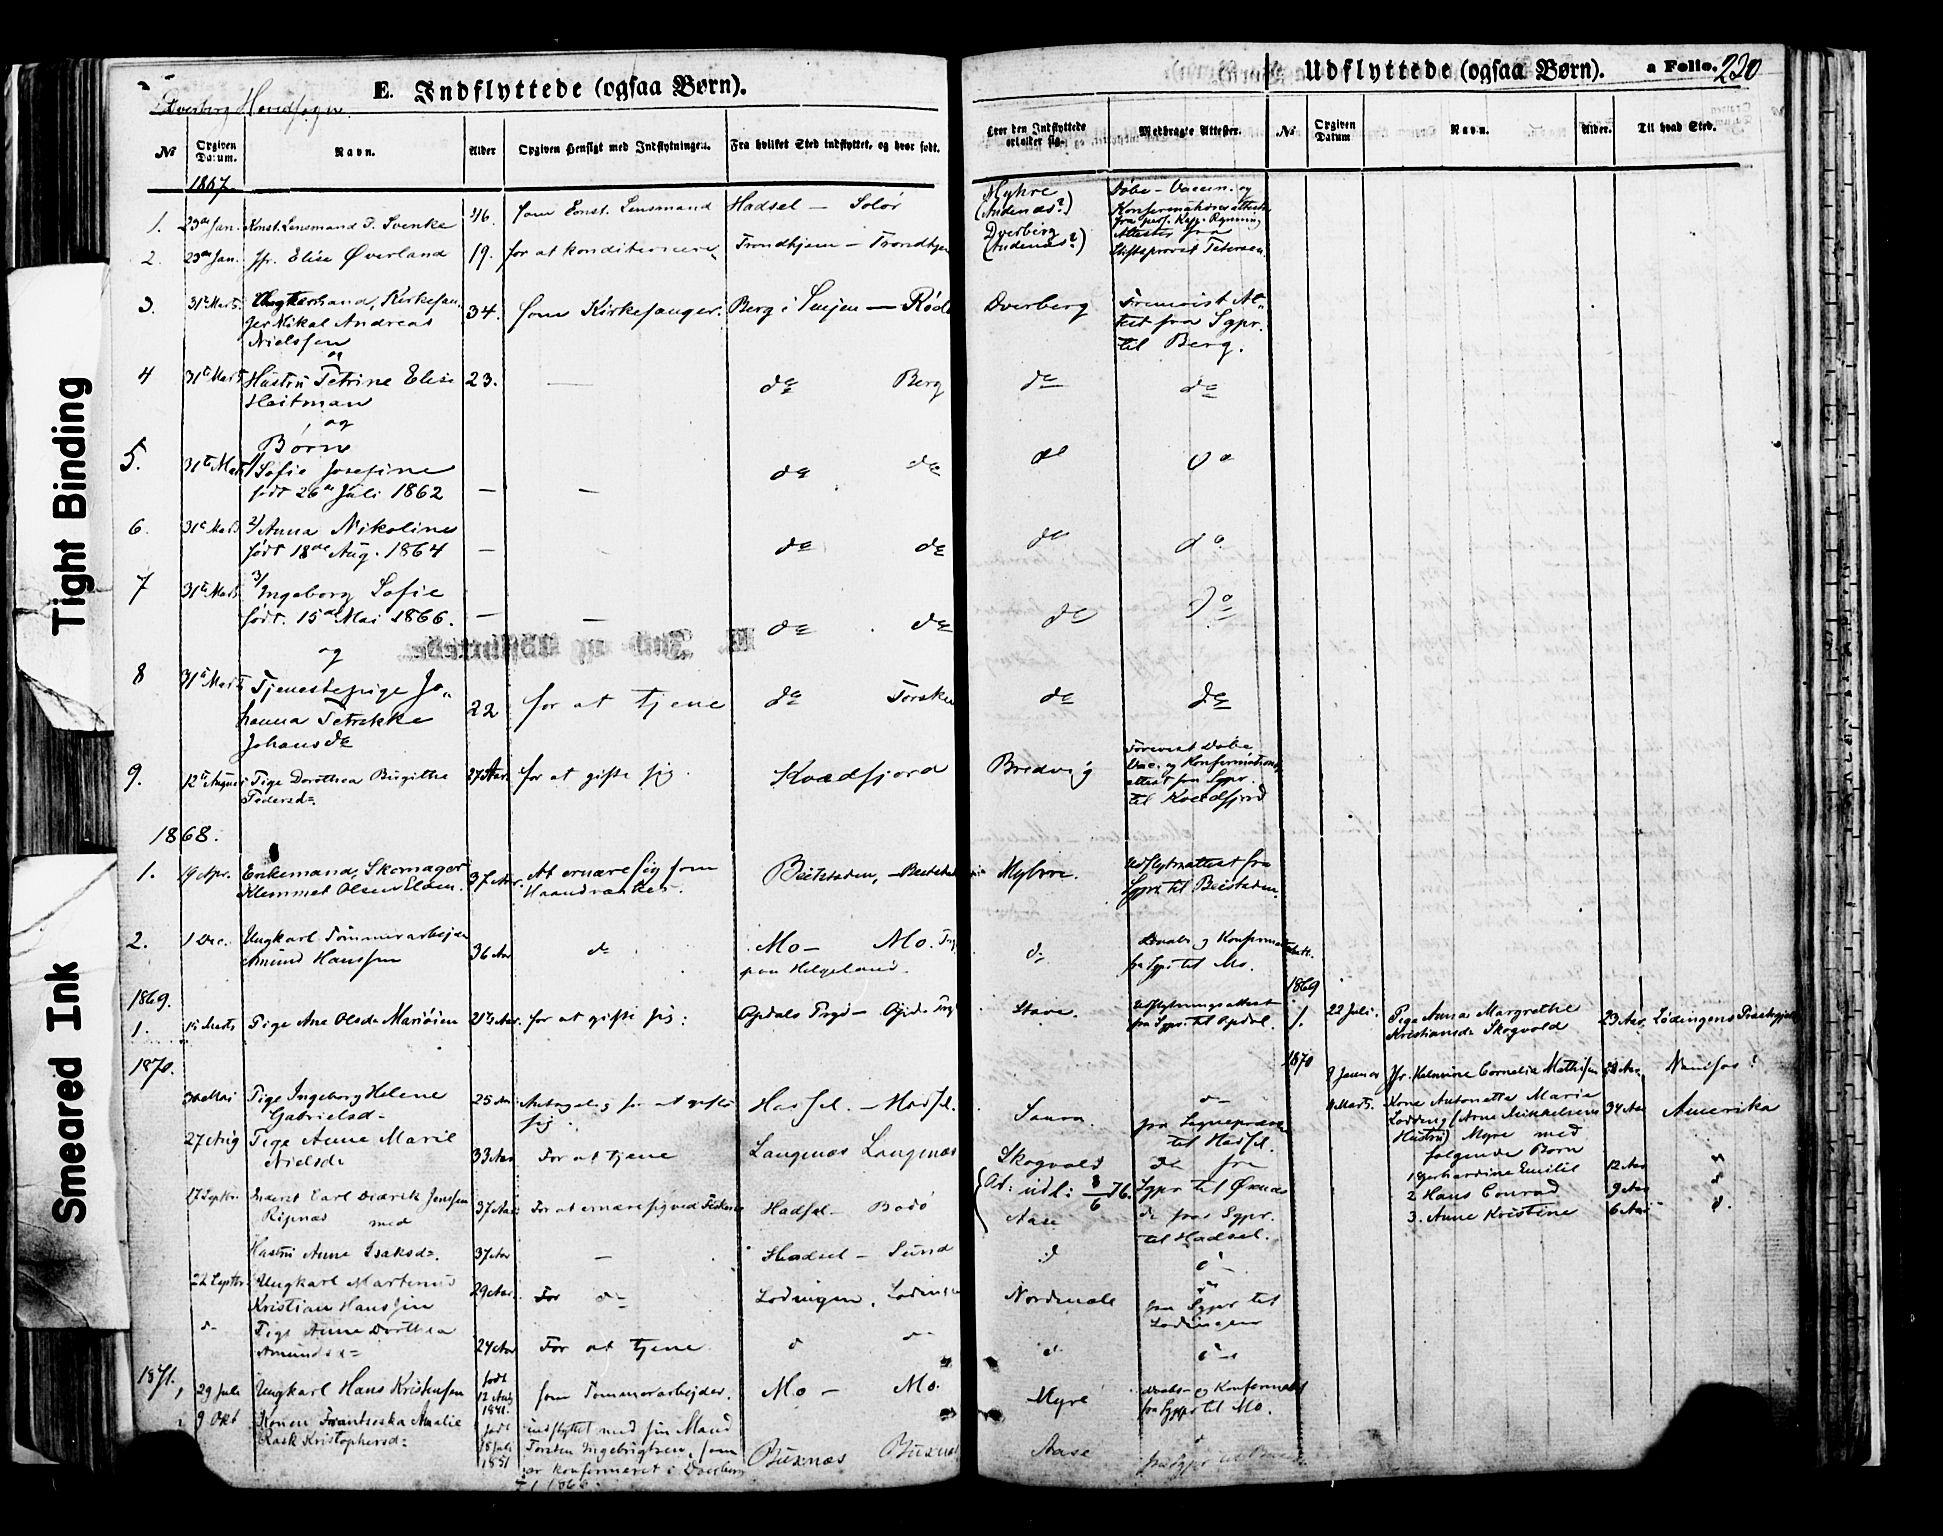 Dverberg Hovedsogn.
E. Indflyttede (ogsaa Børn).
№ Opgiven Datum. Navn. Alder Opgiven Hensigt med Indflytningen. Fra hvilket Sted indflyttet, og hvor født.
1867.
1. 23de Jan. Konst. Lensmand J. Svenke 26. som Const. Lensmand Hadsel – Solør
2. 23de Jan. Jfr. Elise Øverland 19. for at konditionere Trondhjem – Trondhjem
3. 31te Marts Kirkesan-
ger Nikal Andreas 34. som Kirkesanger. Berg i Senjen – Rød
Nielssen
og
4 31te Marts Hustru Petrine Elise 23. — do Berg
Heitman
, og
Børn
5. 31te Marts 1/ Sofie Josefine do do
født 26de Juli 1862 — —
6. 31te Marts 2/ Anna Nikoline
født 18de Aug. 1864 — do do
7 31te Marts 3/ Ingeborg Sofie
født. 15de Mai 1866. — — do do
og
8 31te Marts Tjenestepige Jo-
hanna Petrikke 22 for at tjene do Torsken
Johansdr
9. 12te August Pige Dorothea Birgitha 27 Aar. for at gifte sig. Kvædfjord
Pedersdr.
1868.
1. 19 Apr. Enkemand, Skomager 37 Aar. At ernære sig som Beitstaden, – Beitstaden
Klemmet Olsen Elden. Haandværker.
2. 1 Dec. Ungkarl Tømmerarbejder 36 Aar do Mo – Mo.
Amund Hanssen paa Helgeland.
1869.
1. Marts Pige Ane Olsdr Mariøien 21 Aar. for at gifte sig: Opdals Prgd –
1870.
30 Mai Pige Ingeborg Helene 25 Aar Antagelig for at gifte Hadsel. – Hadsel.
Gabrielsd– sig.
27 Aug Pige Anne Marie 33 Aar For at tjene Langenæs Langenæs
Nielsdr
17 Septbr. Carl Didrik Jenssen 37 Aar For at ernære sig ved Fiskeri Hadsel – Bodø
Ripnæs med
Hustru Anne Isaksdr. 37 Aar — Hadsel – Sund
22 Septbr. Ungkarl Martinus 29 Aar. For do Lødingen, Lødingen
Kristian Hanssen
do Pige Anne Dorthea 24 Aar For at tjene do do
Amundsdr
1871. 29 Juli Ungkarl Hans Kristensen født 12 Aug 1841. som Tømmerarbejder. Mo – Mo.
9 Okt Konen Frantseska Amalie født 18 Juli 1851 indflyttet med sin Mand
Rask Kristophersdr Torsten Ingebrigtsen, som Buxnæs Buxnæs
er konfirmeret i Dverberg
1866.
Udflyttede (ogsaa Børn). a Folio. 220
Hvor den Indflyttede opholder sig. Medbragte Attester. № Opgiven Datum Navn. Alder. Til hvad Sted.
Myhre Døbe – Vaccin. og
(Andenæs?) Konfirmationsattester
fra pers. Kap. Rynning
Dverberg Attester fra
(Andenæs?) Stiftsprovst Petersen
Dverberg Foreviist At-
test fra Sgpr.
til Berg.
do do
do do
do do
do do
do do
Bredvig Forevist Døbe
Vac. og Konfirmations-
attest fra Sgpr.
til Kvædfjord
Myhre. Udflytn.attest fra
Sgpr. til Beitstaden.
do Daabs og Konfirmat. Att.
fra Sgpr til Mo.
1869
Stave. Udflytningsattest 1. 22 Juli. Pige Anna Margrethe 23 Aar Lødingens Præstegjeld
fra Sgpr. til Opdal. Kristiansdr Skogvold
1870
9 Januar Jfr. Helmine Cornelia Mathisen Aar Namsos
Saura. do 11 Marts. Kone Antonette Marie 34 Aar Amerika
fra Sognepræsten Lodding (Arne Mikkelsens
til Hadsel. Hustru) Myre med
følgende Børn
Skogvold do fra 1 Gerhardine Emilie 12 Aar do
At: udl: 8/6 76. Sgpr til Øxnæs 2 Hans Conrad 9 Aar do
Aase do fra Sgpr. 3. Anne Kristine 6 Aar d.
til Hadsel.
do do
Nordmele do
fra Sgpr til
Lødingen
do do
Myre Daabs– og Konfirmat
fra Sgpr til Mo.
Aase do
fra Sgpr til Buxnæs
E. Ind- og Udflyttede.
Tight Binding
Smeared Ink